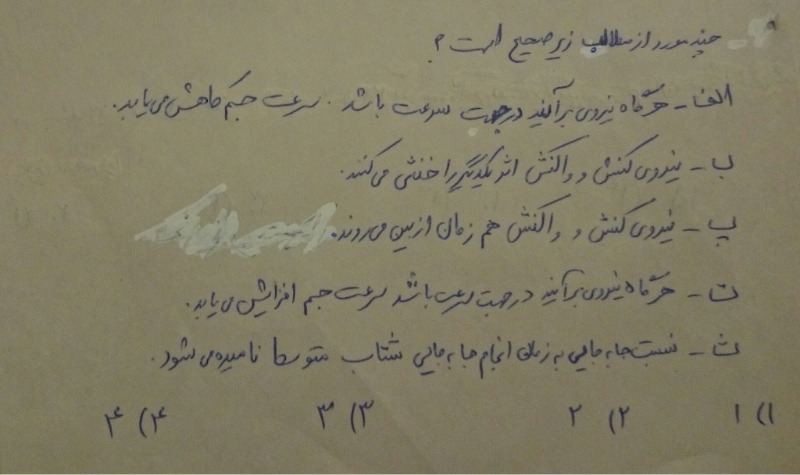 ۹ - چند مورد از مطالب زیر صحیح است؟
الف - هرگاه نیروی برآیند در جهت سرعت باشد. سرعت جسم کاهش می یابد.
ب - نیروی کنش و واکنش اثر یکدیگر را خنثی می کنند.
پ - نیروی کنش و واکنش هم زمان از بین می روند.
ت - هرگاه نیروی برآیند در جهت سرعت باشد سرعت جسم افزایش می یابد.
ث - نسبت جا به جایی به زمان انجام جا به جایی شتاب متوسط نامیده می شود.
۱) ۱ ۲) ۲ ۳) ۳ ۴) ۴